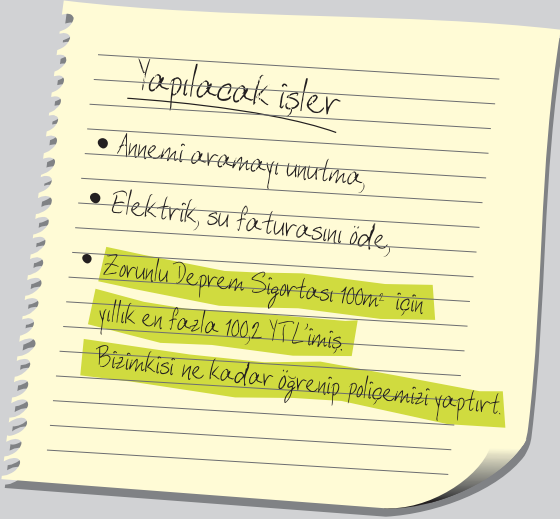 Yapılacak işler
• Annemi aramayı unutma,
• Elektrik, su faturasını öde,
• Zorunlu Deprem Sigortası 100m² için
yıllık en fazla 100,2 YTL'imiş.
Bizimkisi ne kadar öğrenip poliçemizi yaptırt.